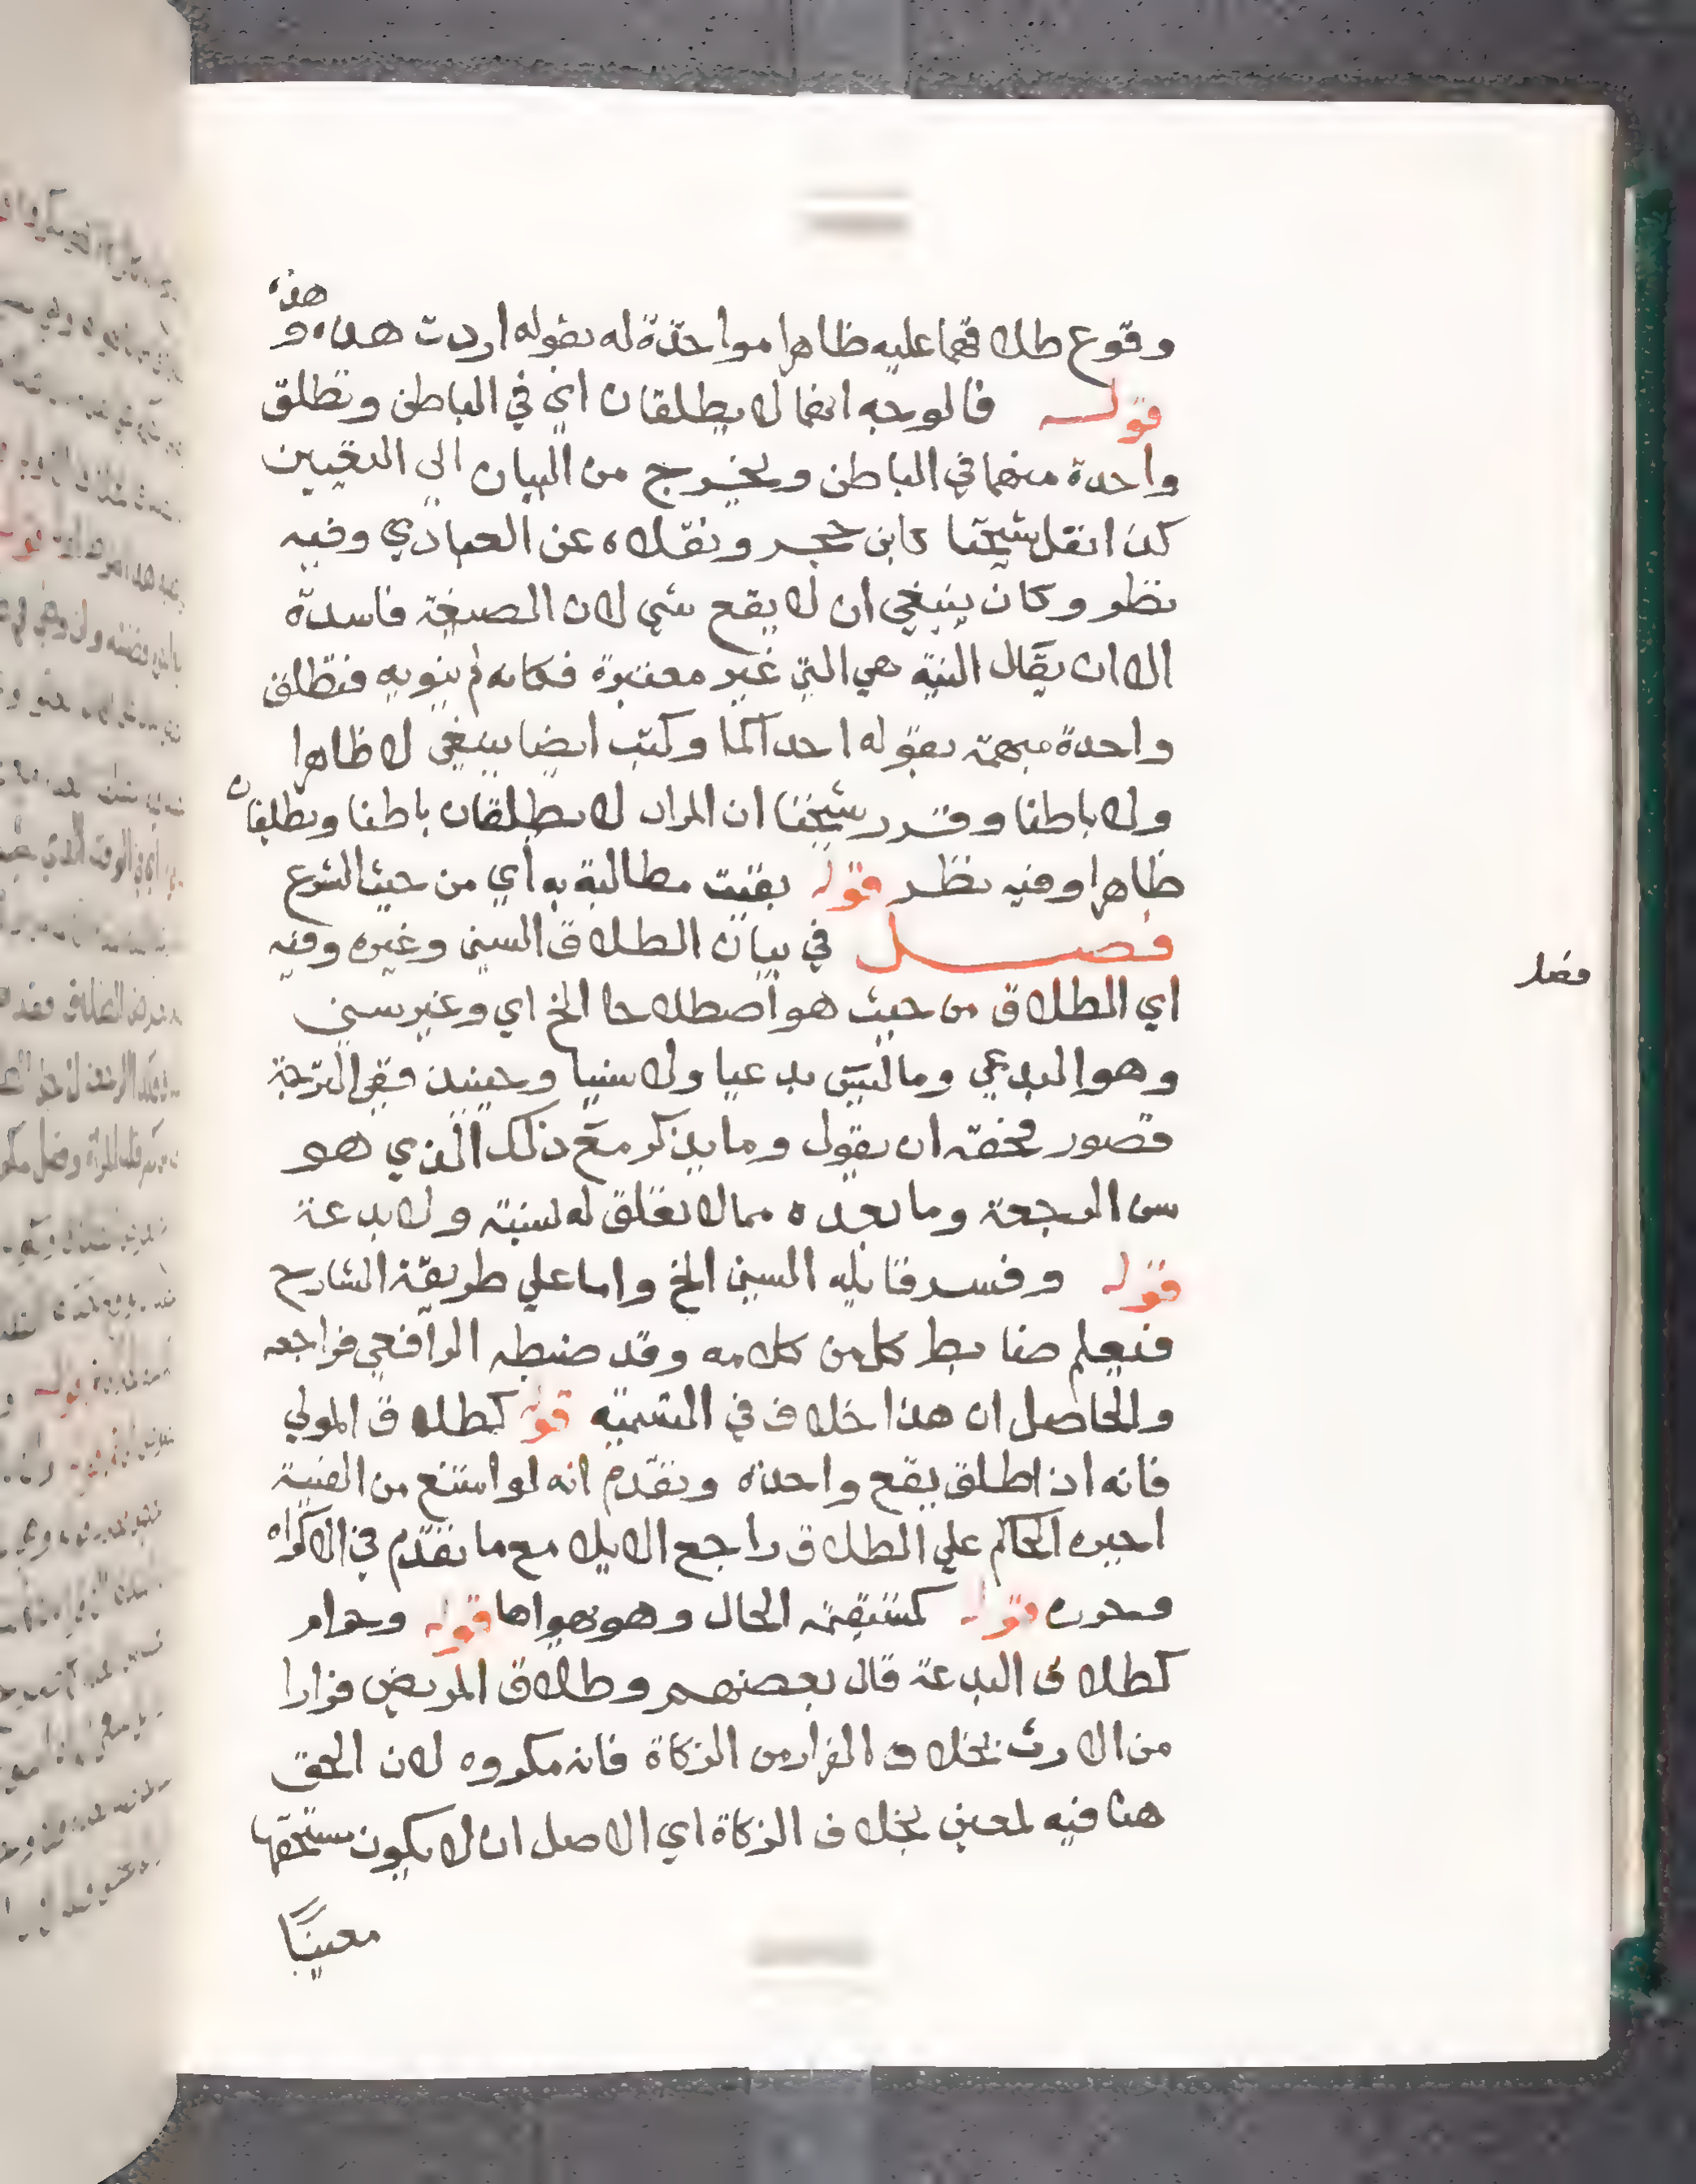 وقوع طلاقهما عليه ظاهرا مواخذة له بقوله اردت هذه وهذه
قوله فالوجه انهما لا يطلقان اي في الباطن وتطلق
واحدة منهما في الباطن ويخرج من البيان الي التعيين
كذا نقل شيخنا كابن حجر ونقلاه عن العبادي وفيه
نظر وكان ينبغي ان لا يقع شي لان الصيغة فاسدة
الا ان يقال النية هي التي غير معتبرة فكانه لم ينويه فتطلق
واحدة مبهمة بقوله احداكما وكتب ايضا ينبغي لا ظاهرا
ولا باطنا وقرر شيخنا ان المراد لا يطلقان باطنا ويطلقان
ظاهرا وفيه نظر قوله بقيت مطالبة به أي من حيث الشرع
فصل في بيان الطلاق السني وغيره وفيه
فصل
اي الطلاق من حيث هو اصطلاحا الخ اي وغير سني
وهو البدعي وما ليس بدعيا ولا سنيا وحينيذ ففي الترجمة
قصور فحقه ان يقول وما يذكر مع ذلك الذي هو
سن الرجعة وما بعده مما لا تعلق له لسنة ولا بدعة
قوله وفسر قايله السني الخ واما علي طريقة الشارح
فيعلم ضابط كل من كلامه وقد ضبطه الرافعي فراجعه
والحاصل ان هذا خلاف في التسمية قوله كطلاق المولي
فانه اذا طلق يقع واحدة وتقدم انه لو امتنع من الفيية
اجبره الحاكم علي الطلاق راجع الايلا مع ما تقدم في الاكراه
وحرره قوله كمستقيمة الحال وهو يهواها قوله وحرام
كطلاق البدعة قال بعضهم وطلاق المريض فرارا
من الارث بخلاف الفرار من الزكاة فانه مكروه لان الحق
هنا فيه لمعين بخلاف الزكاة اي الاصل ان لا يكون مستحقها
معينًا